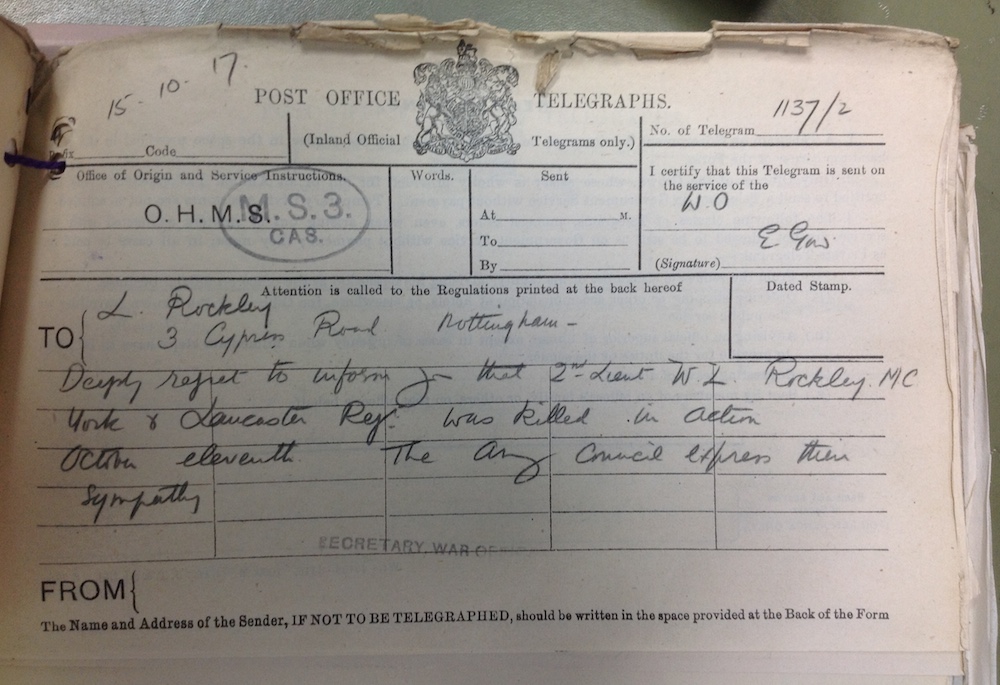 15-10-17.
POST OFFICE TELEGRAPHS.
(Inland Official Telegrams only.)
No. of Telegram 1137/2
Code
Office of Origin and Service Instructions.
O.H.M.S.
M.S.3.
CAS.
Words.
Sent
At M.
To
By
I certify that this Telegram is sent on
the service of the
W.O
(Signature)
Attention is called to the Regulations printed at the back hereof
Dated Stamp.
TO
L. Rockley
3 Cypress Road Nottingham-
Deeply regret to inform you that 2nd Lieut W L. Rockley. MC
York & Lancaster Reg. was killed in action
October eleventh. The Army Council express their
sympathy
SECRETARY WAR OFFICE
FROM
The Name and Address of the Sender, IF NOT TO BE TELEGRAPHED, should be written in the space provided at the Back of the Form